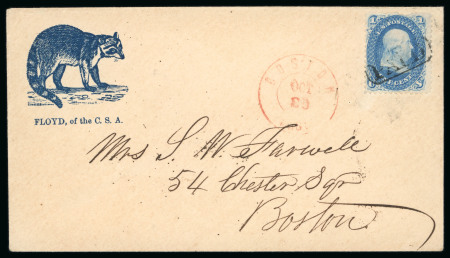 FLOYD, of the C. S. A.
BOSTON
OCT
Mrs S. W. Farwell
54 Chester Sqr
Boston